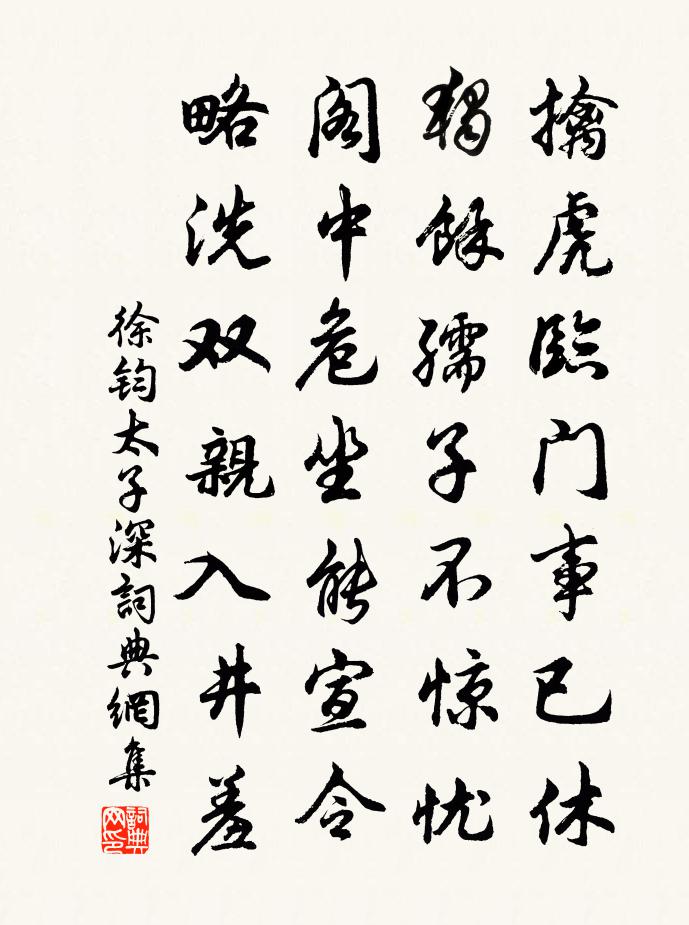 擒虎臨门事已休
獨餘孺子不惊忧
阁中危坐能宣令
略洗双親入井羞
徐鈞太子深詞典網集
詞典网印